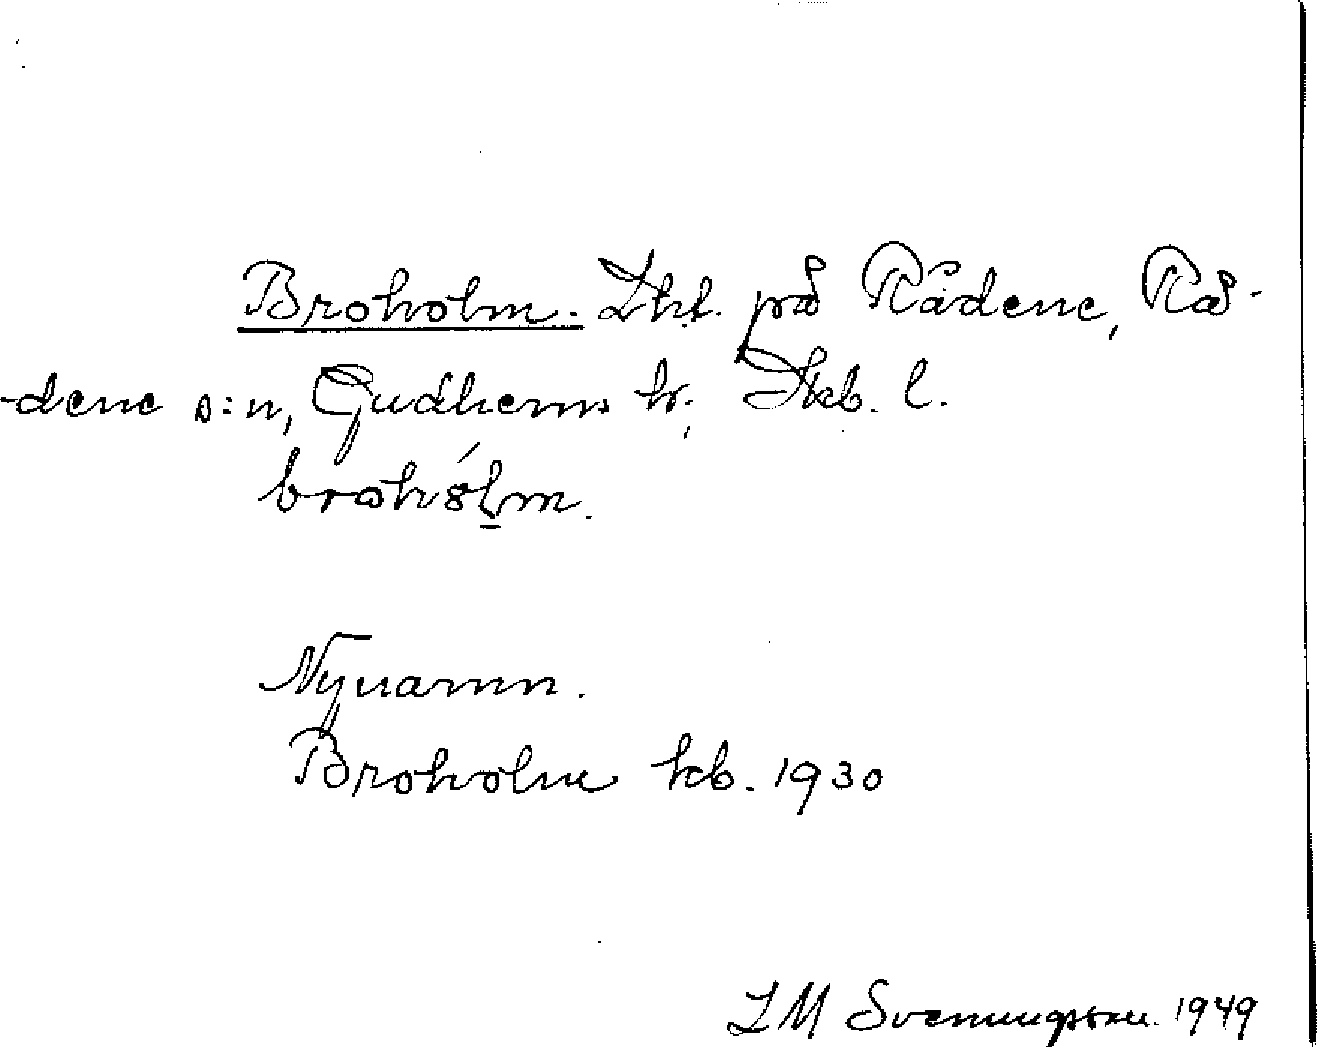 Broholm. Lht. på Rådene, Rå-
dene s:n, Gudhems hr, Skb. l.
brohólm.
Nynamn.
Broholm kb. 1930
I M Svenungsson 1949